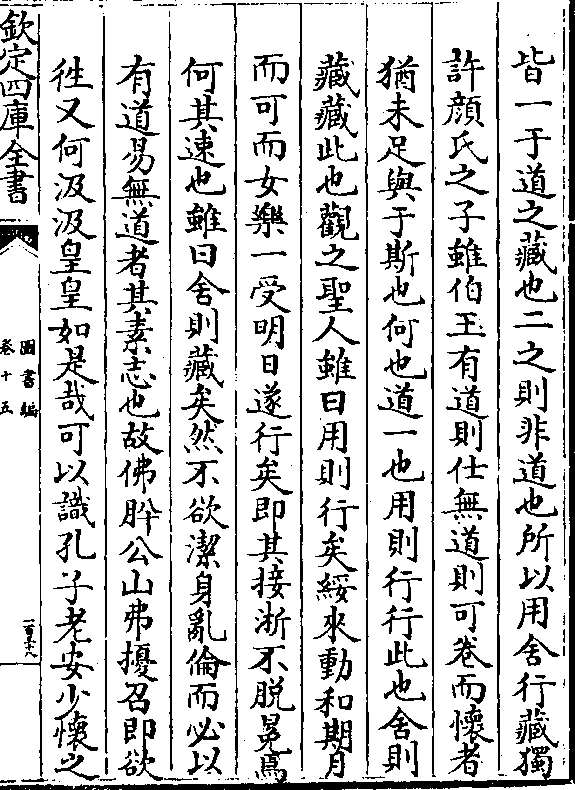 皆一于道之藏也二之則非道也所以用舍行藏獨
許顔氏之子雖伯玉有道則仕無道則可卷而懷者
猶未足與于斯也何也道一也用則行行此也舍則
藏藏此也觀之聖人雖曰用則行矣綏來動和期月
而可而女樂一受明日遂行矣即其接淅不脱冕焉
何其速也雖曰舍則藏矣然不欲潔身亂倫而必以
有道易無道者其素志也故佛肸公山弗擾召即欲
徃又何汲汲皇皇如是哉可以識孔子老安少懷之
欽定四庫全書
圖書編
卷十五